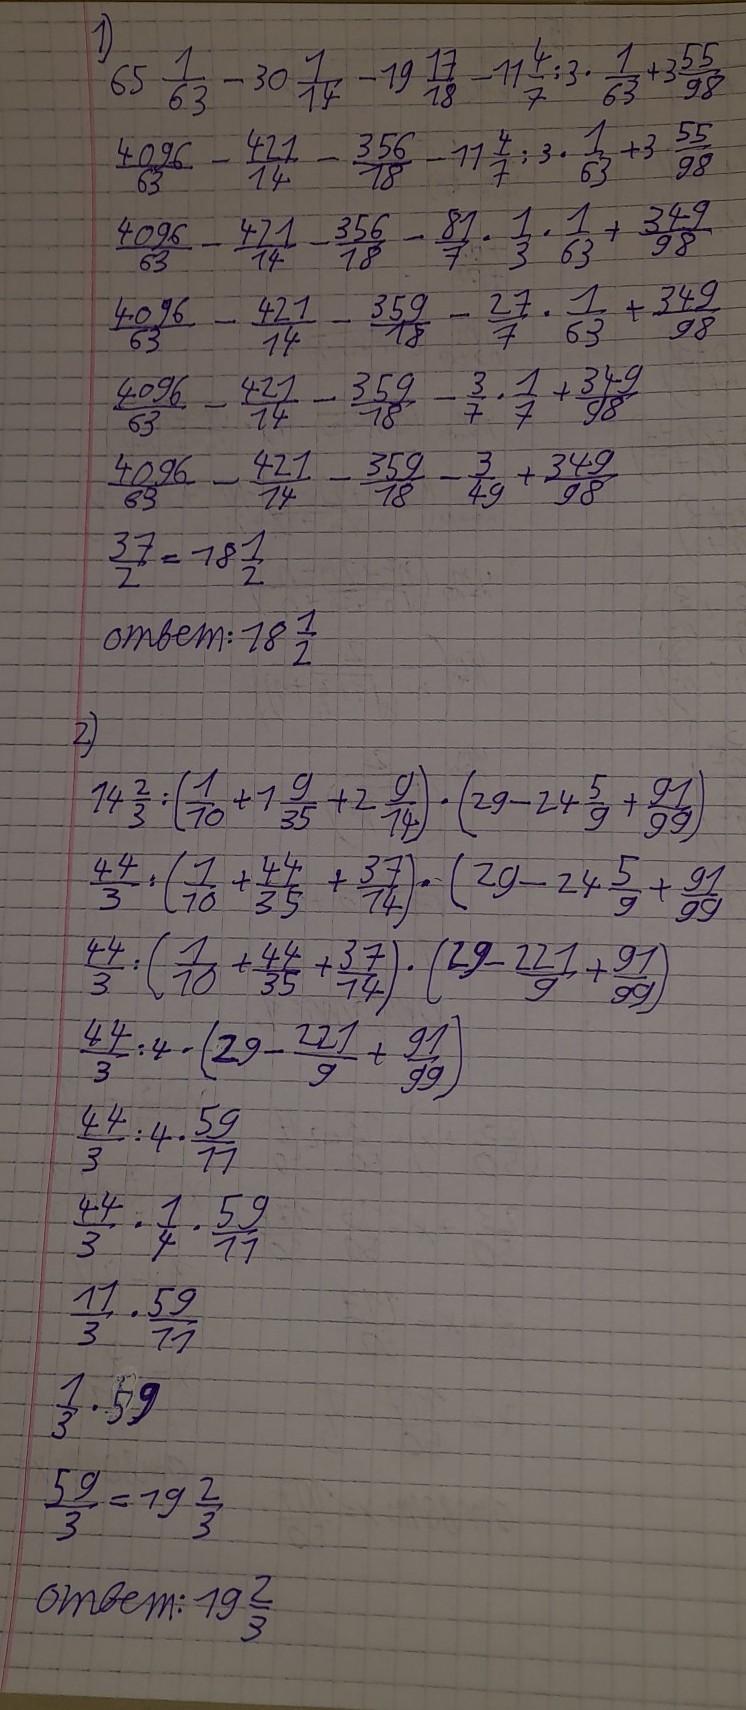 1)
65 1/63 - 30 1/14 - 19 17/18 - 11 4/7 : 3 · 1/63 + 3 55/98
4096/63 - 421/14 - 356/18 - 11 4/7 : 3 · 1/63 + 3 55/98
4096/63 - 421/14 - 356/18 - 81/7 · 1/3 · 1/63 + 349/98
4096/63 - 421/14 - 359/18 - 27/7 · 1/63 + 349/98
4096/63 - 421/14 - 359/18 - 3/7 · 1/7 + 349/98
4096/63 - 421/14 - 359/18 - 3/49 + 349/98
37/2 = 18 1/2
ответ: 18 1/2
2)
14 2/3 : (1/10 + 1 9/35 + 2 9/14) · (29 - 24 5/9 + 91/99)
44/3 : (1/10 + 44/35 + 37/14) · (29 - 24 5/9 + 91/99
44/3 : (1/10 + 44/35 + 37/14) · (29 - 221/9 + 91/99)
44/3 : 4 · (29 - 221/9 + 91/99)
44/3 : 4 · 59/11
44/3 · 1/4 · 59/11
11/3 · 59/11
1/3 · 59
59/3 = 19 2/3
ответ: 19 2/3